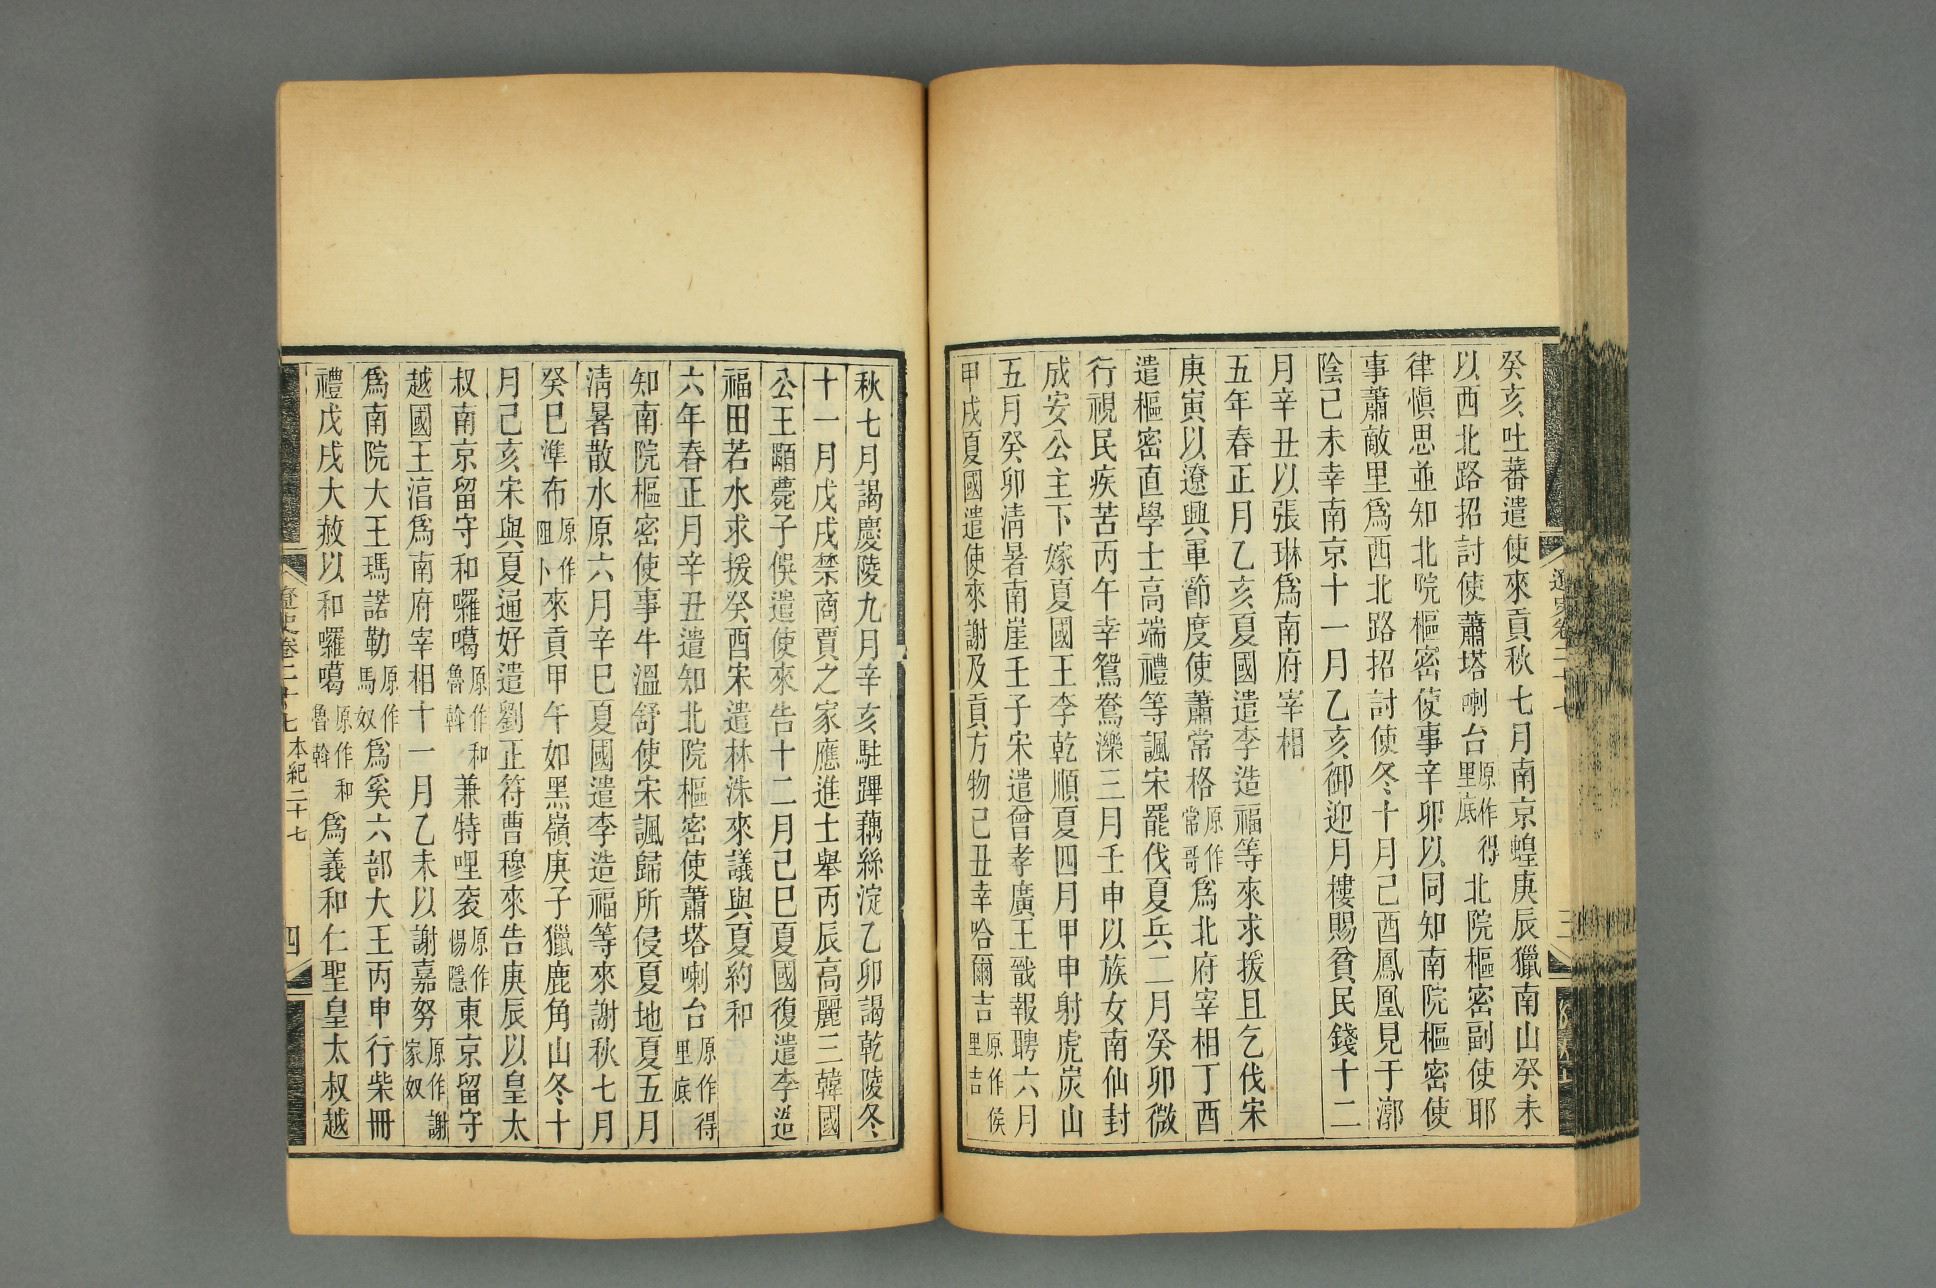 遼史卷二十七
三
癸亥吐蕃遣使來貢秋七月南京蝗庚辰獵南山癸未
以西北路招討使蕭塔喇台原作得里底北院樞密副使耶
律愼思並知北院樞密使事辛卯以同知南院樞密使
事蕭敵里爲西北路招討使冬十月己酉鳳凰見于漷
陰己未幸南京十一月乙亥御迎月樓賜貧民錢十二
月辛丑以張琳爲南府宰相
五年春正月乙亥夏國遣李造福等來求援且乞伐宋
庚寅以遼興軍節度使蕭常格原作常哥爲北府宰相丁酉
遣樞密直學士高端禮等諷宋罷伐夏兵二月癸卯微
行視民疾苦丙午幸鴛鴦濼三月壬申以族女南仙封
成安公主下嫁夏國王李乾順夏四月甲申射虎炭山
五月癸卯淸暑南崖壬子宋遣曾孝廣王戩報聘六月
甲戌夏國遣使來謝及貢方物己丑幸哈爾吉原作候里吉
秋七月謁慶陵九月辛亥駐蹕藕絲淀乙卯謁乾陵冬
十一月戊戌禁商賈之家應進士舉丙辰高麗三韓國
公王顒薨子俁遣使來告十二月己巳夏國復遣李造
福田若水求援癸酉宋遣林洙來議與夏約和
六年春正月辛丑遣知北院樞密使蕭塔喇台原作得里底
知南院樞密使事牛溫舒使宋諷歸所侵夏地夏五月
淸暑散水原六月辛巳夏國遣李造福等來謝秋七月
癸巳準布原作阻卜來貢甲午如黑嶺庚子獵鹿角山冬十
月己亥宋與夏通好遣劉正符曹穆來告庚辰以皇太
叔南京留守和囉噶原作和魯斡兼特哩衮原作惕隱東京留守
越國王涫爲南府宰相十一月乙未以謝嘉努原作謝家奴
爲南院大王瑪諾勒原作馬奴爲奚六部大王丙申行柴冊
禮戊戌大赦以和囉噶原作和魯斡爲義和仁聖皇太叔越
遼史卷二十七 本紀二十七
四